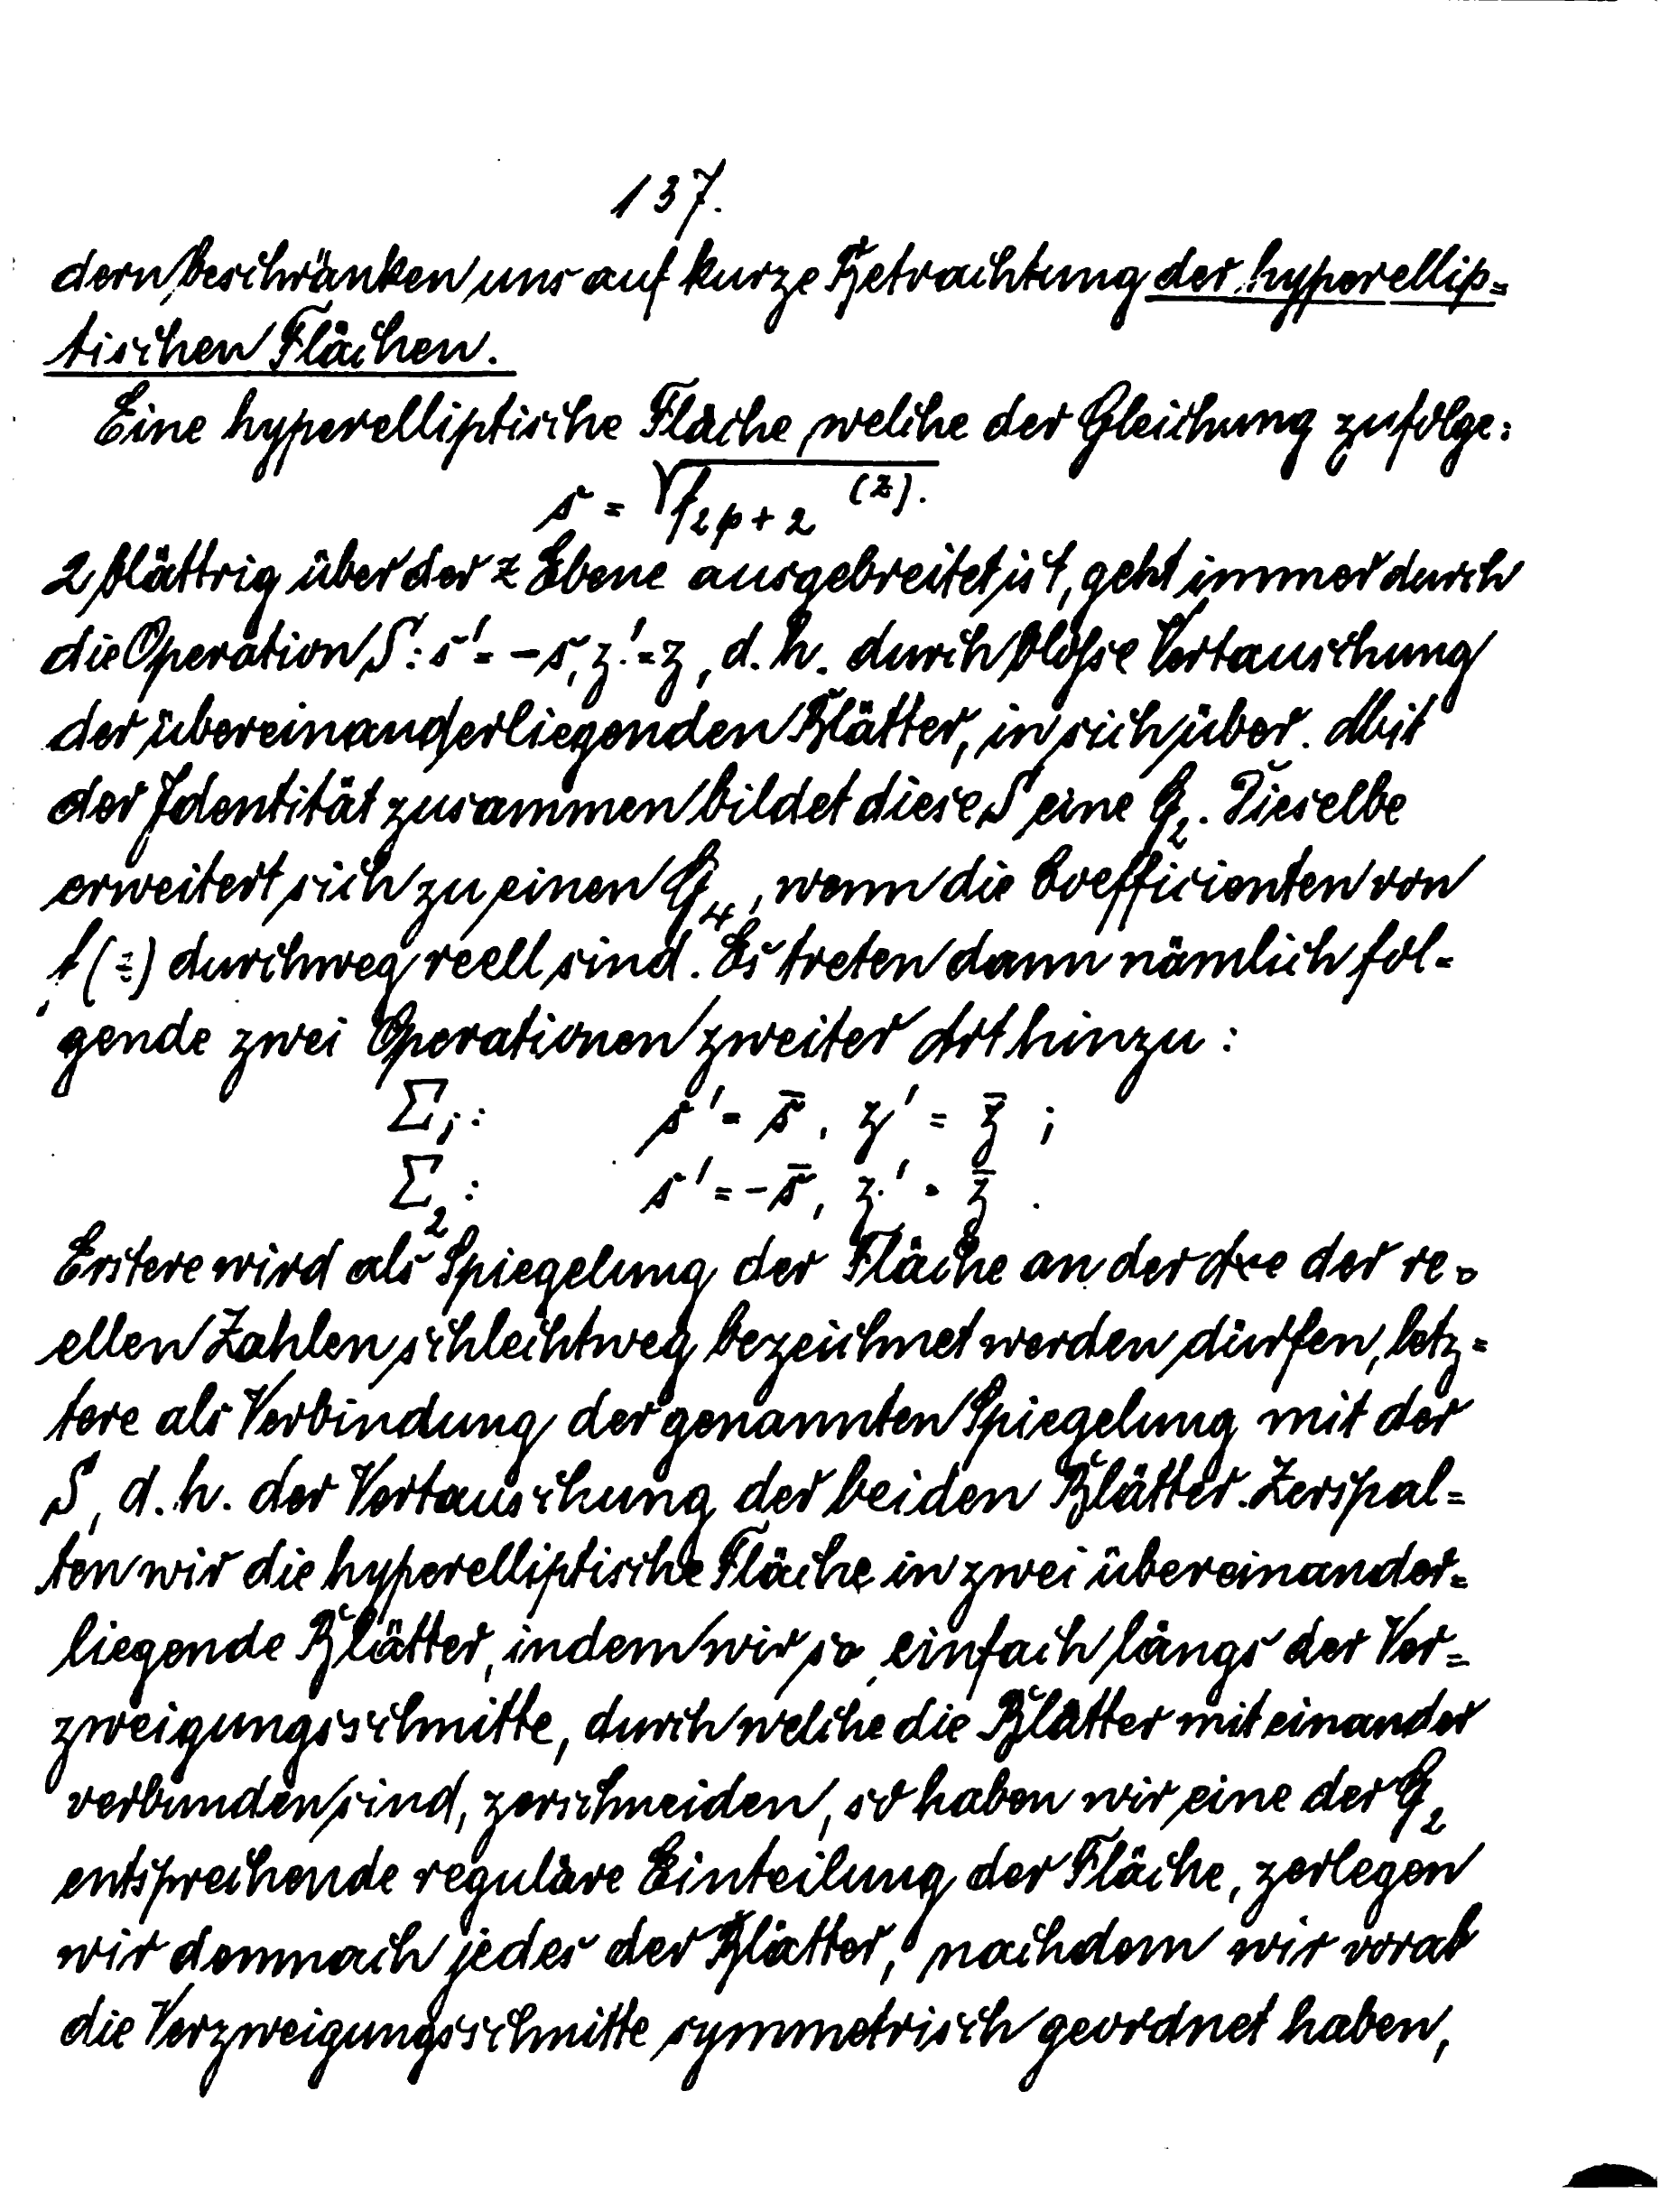 137.
dern beschränken uns auf kurze Betrachtung der hyperellip=
tischen Flächen.
Eine hyperelliptische Fläche, welche der Gleichung zufolge:
s = √f_{2p+2} (z).
2 blättrig über der z Ebene ausgebreitet ist, geht immer durch
die Operation S: s' = -s, z' = z, d. h. durch bloße Vertauschung
der übereinanderliegenden Blätter, in sich über. Mit
der Identität zusammen bildet diese S eine G₂. Dieselbe
erweitert sich zu einen G₄, wenn die Coefficienten von
f(z) durchweg reell sind. Es treten dann nämlich fol=
gende zwei Operationen zweiter Art hinzu:
Σ₁: s' = s̄, z' = z̄ ;
Σ₂: s' = -s̄, z' = z̄ .
Erstere wird als Spiegelung der Fläche an der Axe der re=
ellen Zahlen schlechtweg bezeichnet werden dürfen, letz=
tere als Verbindung der genannten Spiegelung mit der
S, d. h. der Vertauschung der beiden Blätter. Zerspal=
ten wir die hyperelliptische Fläche in zwei übereinander=
liegende Blätter, indem wir so einfach längs der Ver=
zweigungsschnitte, durch welche die Blätter mit einander
verbunden sind, zerschneiden, so haben wir eine der G₂
entsprechende reguläre Einteilung der Fläche, zerlegen
wir demnach jedes der Blätter, nachdem wir vorab
die Verzweigungsschnitte symmetrisch geordnet haben,